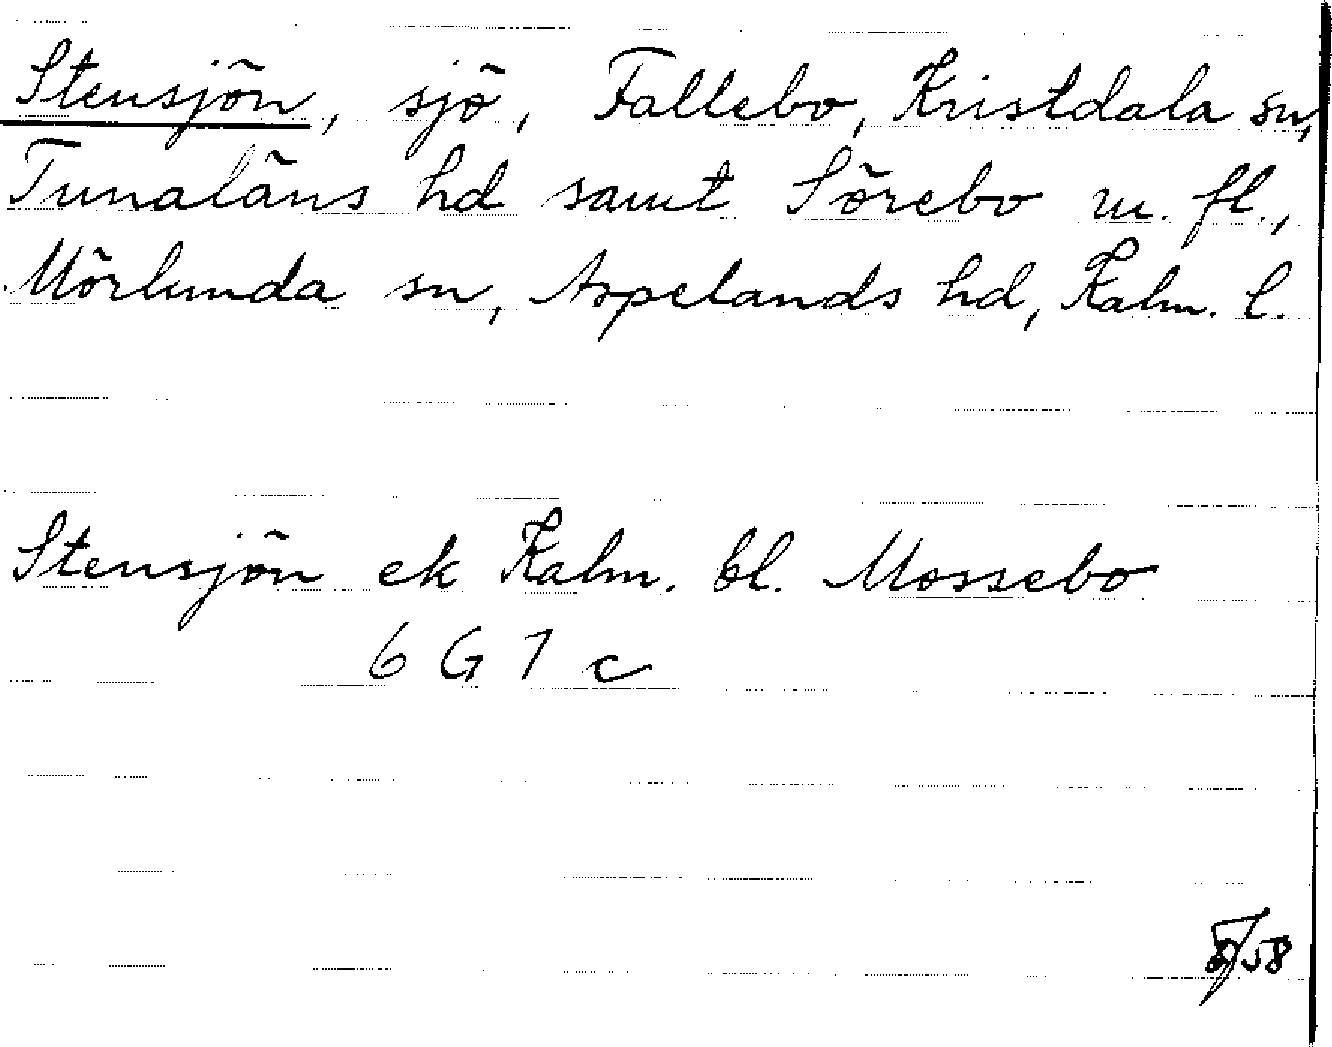 Stensjön, sjö, Fallebo, Kristdala sn,
Tunaläns hd samt Sörebo m. fl.,
Mörlunda sn, Aspelands hd, Kalm. l.
Stensjön ek Kalm. bl. Mossebo
6 G 7 c